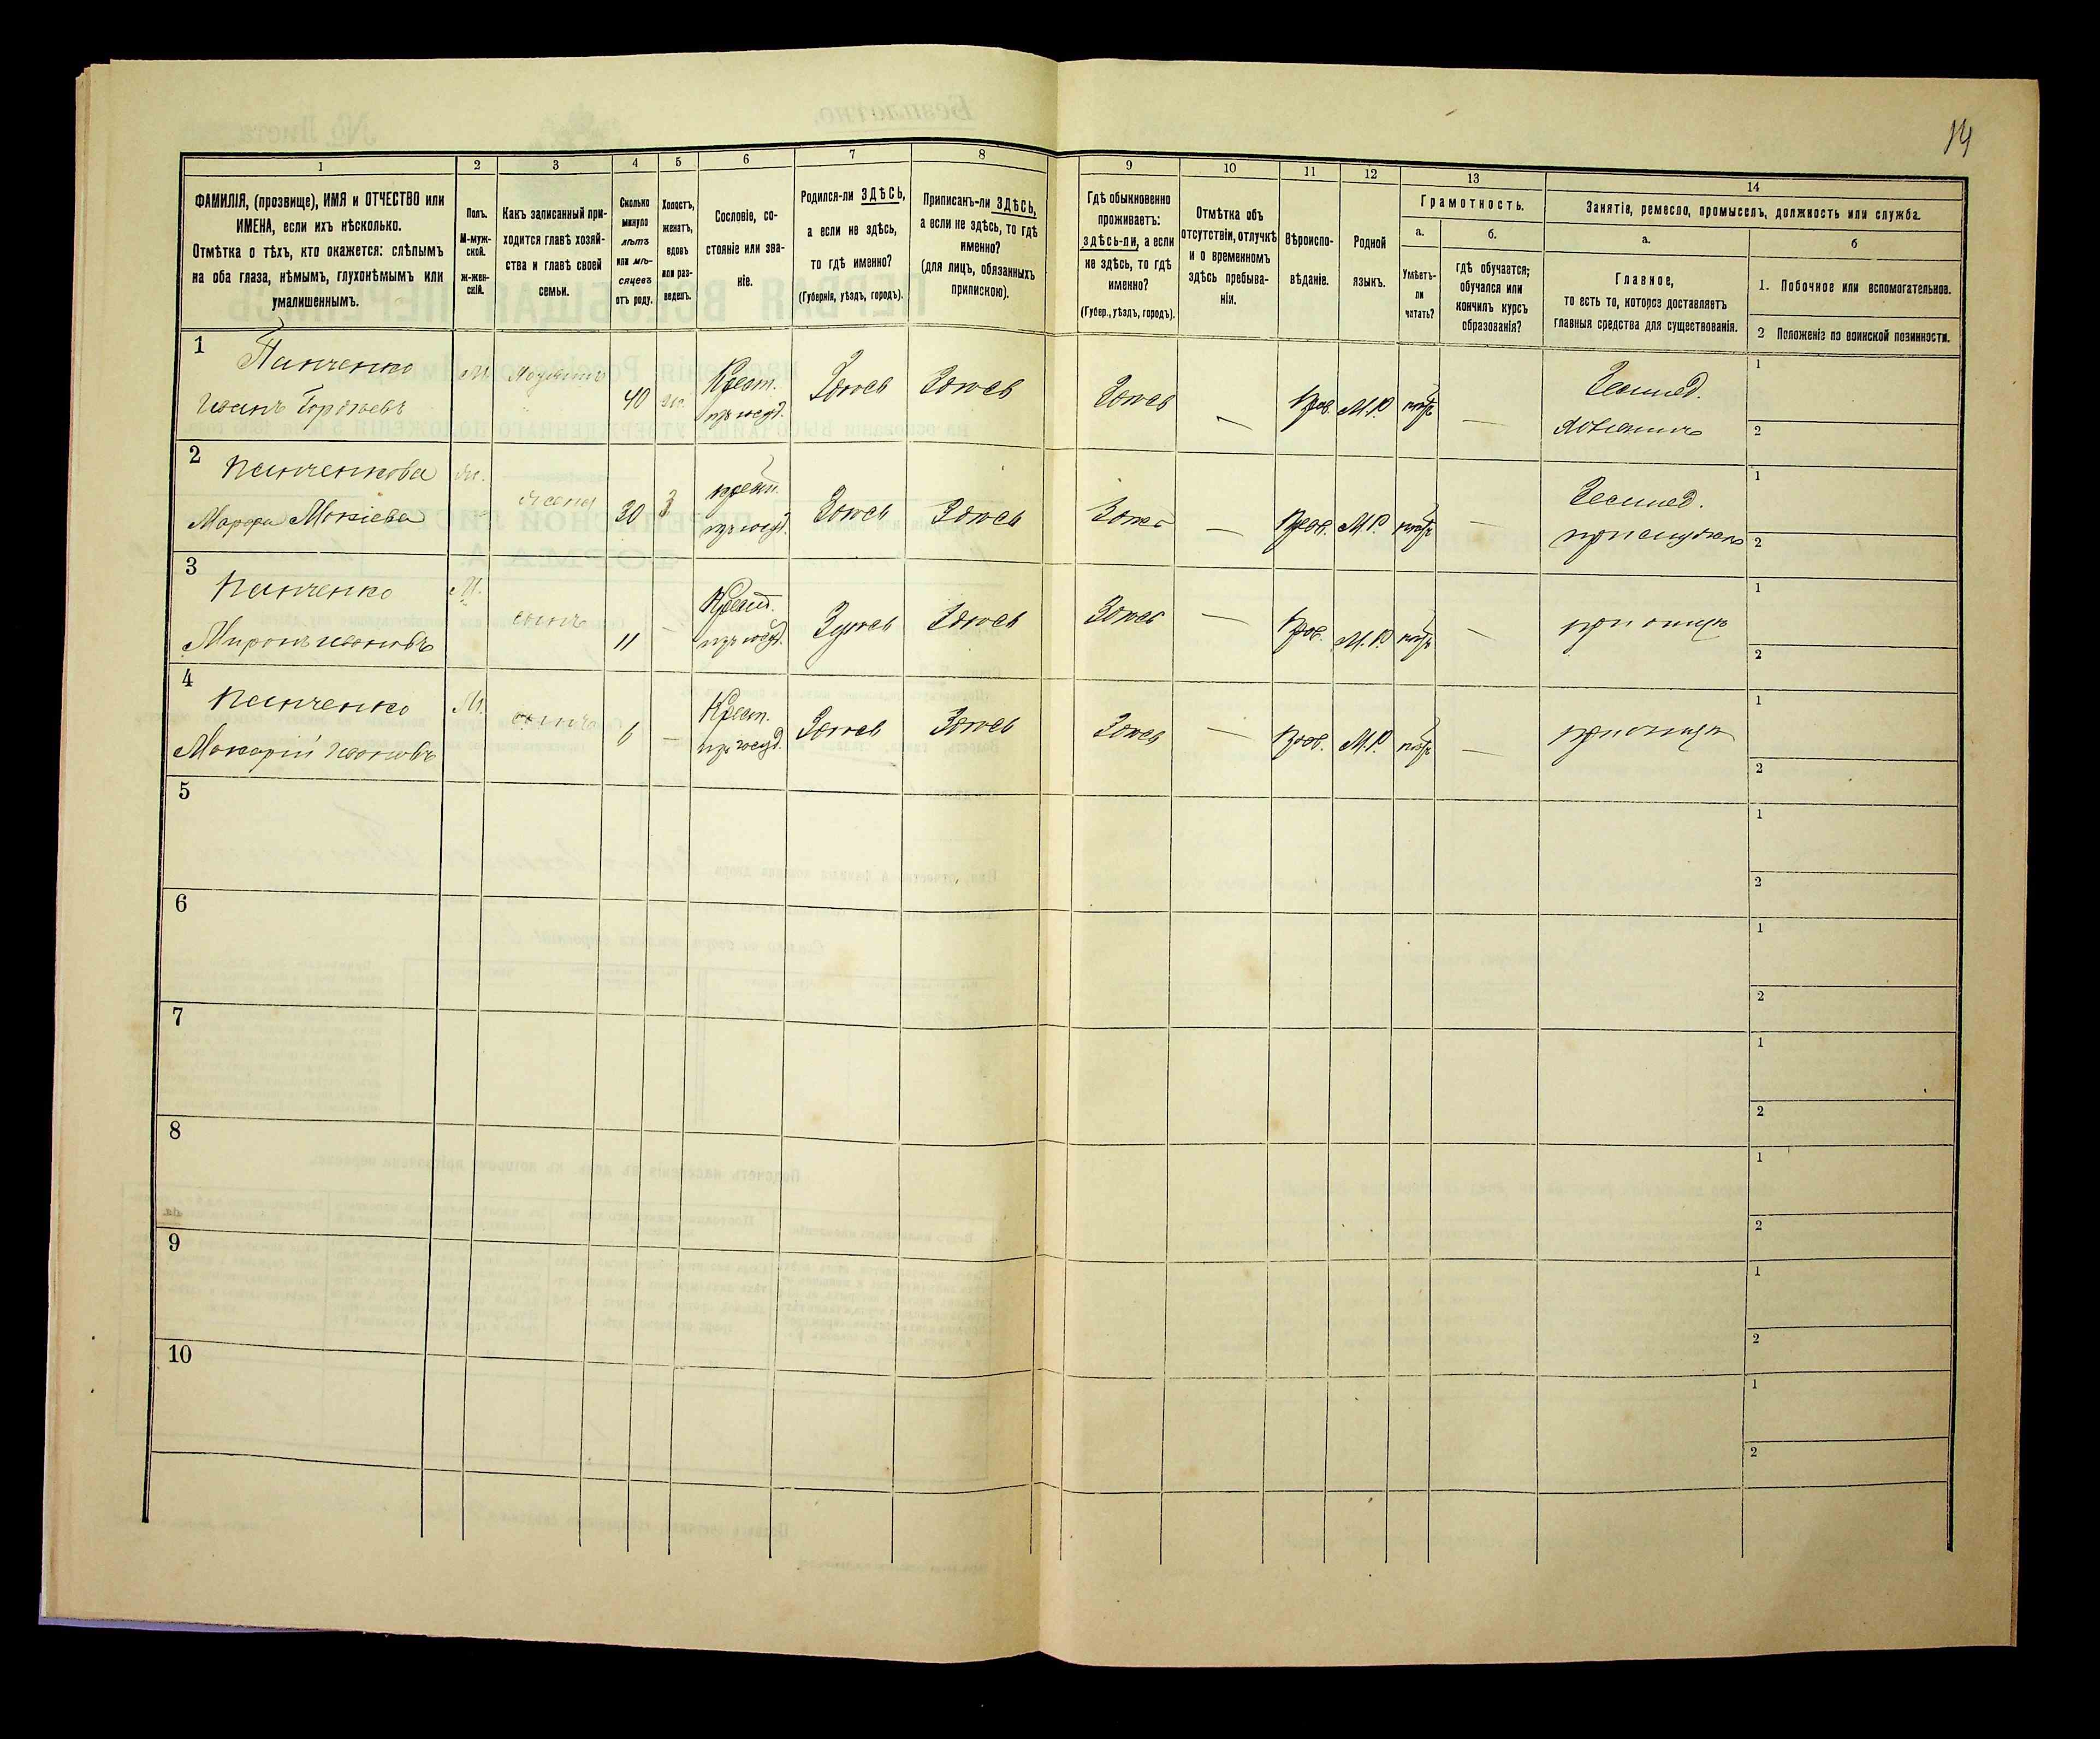 14
1
2
3
4
5
6
7
8
9
10
11
12
13
14
ФАМИЛІЯ, (прозвище), ИМЯ и ОТЧЕСТВО или
ИМЕНА, если ихъ нѣсколько.
Отмѣтка о тѣхъ, кто окажется: слѣпымъ
на оба глаза, нѣмымъ, глухонѣмымъ или
умалишеннымъ.
Полъ.
М-муж-
ской.
ж-жен-
скій.
Какъ записанный при-
ходится главѣ хозяй-
ства и главѣ своей
семьи.
Сколько
минуло
лѣтъ
или мѣ-
сяцевъ
отъ роду.
Холостъ,
женатъ,
вдовъ
или раз-
веденъ.
Сословіе, со-
стояніе или зва-
ніе.
Родился-ли ЗДѢСЬ,
а если не здѣсь,
то гдѣ именно?
(Губернія, уѣздъ, городъ).
Приписанъ-ли ЗДѢСЬ,
а если не здѣсь, то гдѣ
именно?
(для лицъ, обязанныхъ
припискою).
Гдѣ обыкновенно
проживаетъ:
здѣсь-ли, а если
не здѣсь, то гдѣ
именно?
(Губер., уѣздъ, городъ).
Отмѣтка объ
отсутствіи, отлучкѣ
и о временномъ
здѣсь пребыва-
ніи.
Вѣроиспо-
вѣданіе.
Родной
языкъ.
Грамотность.
а.
Умѣетъ-
ли
читать?
б.
гдѣ обучается;
обучался или
кончилъ курсъ
образованія?
Занятіе, ремесло, промыселъ, должность или служба.
а.
Главное,
то есть то, которое доставляетъ
главныя средства для существованія.
б
1. Побочное или вспомогательное.
2 Положеніе по воинской повинности.
1
Панченко
Иванъ Гордѣевъ
М.
Хозяинъ
40
Крест.
изъ госуд.
Здѣсь
Здѣсь
Здѣсь
—
Прав.
М.Р.
—
Землед.
хозяинъ
1
2
2
Панченкова
Марфа Мокіева
жена
30
З
крест.
изъ госуд.
Здѣсь
Здѣсь
Здѣсь
—
Прав.
М.Р.
—
Землед.
при мужѣ
1
2
3
Панченко
Миронъ Ивановъ
М.
сынъ
11
—
Крест.
изъ госуд.
Здѣсь
Здѣсь
Здѣсь
—
Прав.
М.Р.
—
при отцѣ
1
2
4
Панченко
Макарій Ивановъ
М.
сынъ
6
—
Крест.
изъ госуд.
Здѣсь
Здѣсь
Здѣсь
—
Прав.
М.Р.
—
при отцѣ
1
2
5
1
2
6
1
2
7
1
2
8
1
2
9
1
2
10
1
2